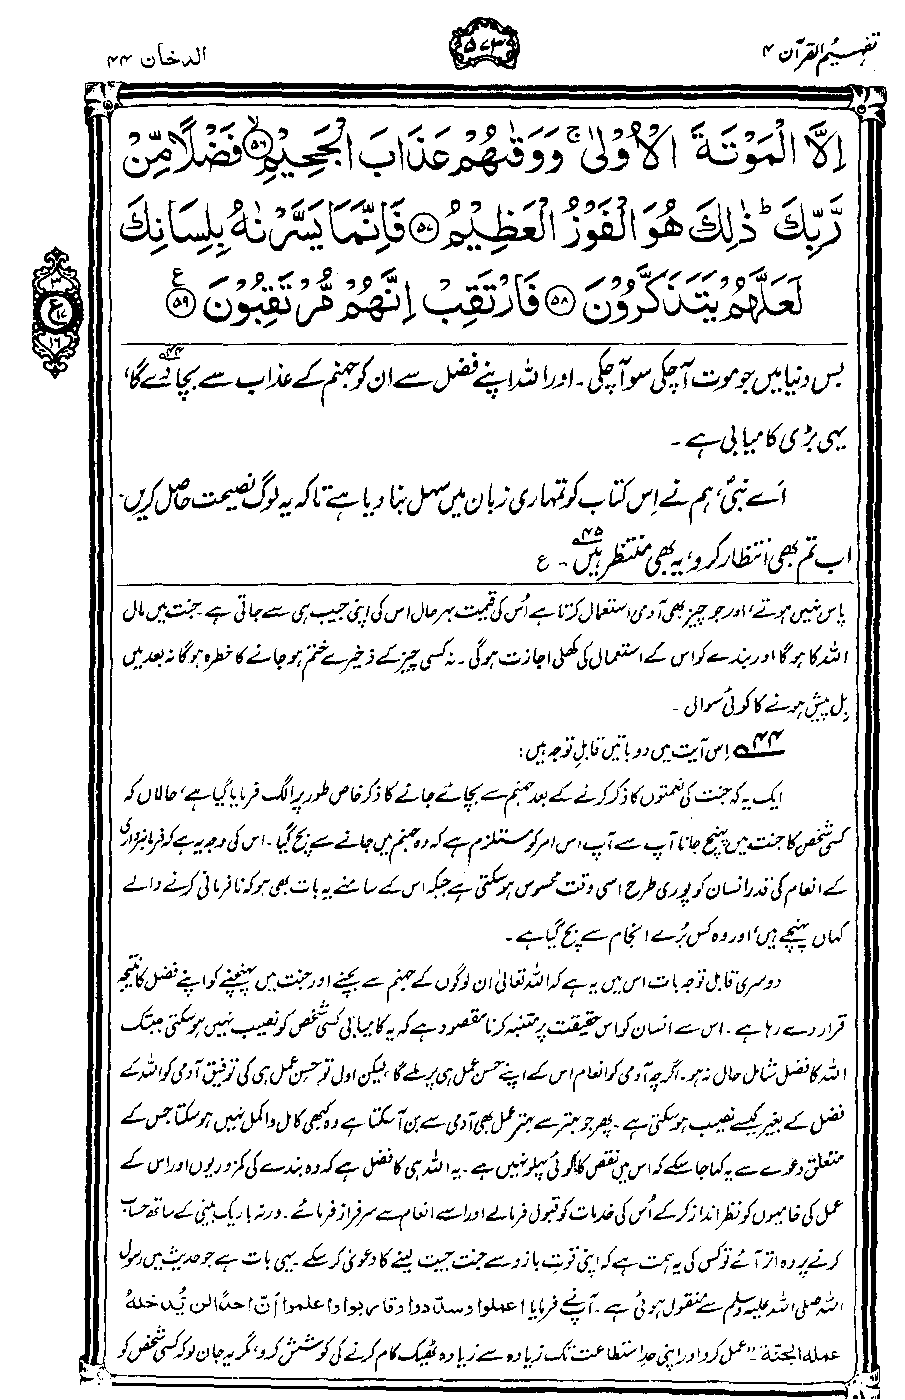 تفہیم القرآن ۴
۵۷۳
الدخان ۴۴
اِلَّا الْمَوْتَةَ الْاُوْلٰىۚ وَوَقٰىهُمْ عَذَابَ الْجَحِيْمِ ﴿۵۶﴾ۙ فَضْلًا مِّنْ
رَّبِّكَ ؕ ذٰلِكَ هُوَ الْفَوْزُ الْعَظِيْمُ ﴿۵۷﴾ فَاِنَّمَا يَسَّرْنٰهُ بِلِسَانِكَ
لَعَلَّهُمْ يَتَذَكَّرُوْنَ ﴿۵۸﴾ فَارْتَقِبْ اِنَّهُمْ مُّرْتَقِبُوْنَ ﴿۵۹﴾ ع
۳
ع
۱۷
۱۶
بس دنیا میں جو موت آچکی سو آچکی۔ اور اللہ اپنے فضل سے ان کو جہنم کے عذاب سے بچا دے گا۴۴،
یہی بڑی کامیابی ہے۔
اَے نبیؐ، ہم نے اِس کتاب کو تمہاری زبان میں سہل بنا دیا ہے تاکہ یہ لوگ نصیحت حاصل کریں۔
اب تم بھی انتظار کرو، یہ بھی منتظر ہیں۴۵۔ ع
پاس نہیں ہوتے، اور جو چیز بھی آدمی استعمال کرتا ہے اُس کی قیمت بہرحال اس کی اپنی جیب ہی سے جاتی ہے۔ جنت میں مال
اللہ کا ہوگا اور بندے کو اس کے استعمال کی کھلی اجازت ہوگی۔ نہ کسی چیز کے ذخیرے ختم ہو جانے کا خطرہ ہوگا نہ بعد میں
بِل پیش ہونے کا کوئی سوال۔
۴۴؎ اِس آیت میں دو باتیں قابلِ توجہ ہیں:
ایک یہ کہ جنت کی نعمتوں کا ذکر کرنے کے بعد جہنم سے بچائے جانے کا ذکر خاص طور پر الگ فرمایا گیا ہے، حالاں کہ
کسی شخص کا جنت میں پہنچ جانا آپ سے آپ اس امر کو مستلزم ہے کہ وہ جہنم میں جانے سے بچ گیا۔ اس کی وجہ یہ ہے کہ فرمانبرداری
کے انعام کی قدر انسان کو پوری طرح اسی وقت محسوس ہو سکتی ہے جبکہ اس کے سامنے یہ بات بھی ہو کہ نافرمانی کرنے والے
کہاں پہنچے ہیں، اور وہ کس بُرے انجام سے بچ گیا ہے۔
دوسری قابل توجہ بات اس میں یہ ہے کہ اللہ تعالیٰ ان لوگوں کے جہنم سے بچنے اور جنت میں پہنچنے کو اپنے فضل کا نتیجہ
قرار دے رہا ہے۔ اس سے انسان کو اس حقیقت پر متنبہ کرنا مقصود ہے کہ یہ کامیابی کسی شخص کو نصیب نہیں ہو سکتی جبتک
اللہ کا فضل شامل حال نہ ہو۔ اگرچہ آدمی کو انعام اس کے اپنے حسن عمل ہی پر ملے گا، لیکن اول تو حسن عمل ہی کی توفیق آدمی کو اللہ کے
فضل کے بغیر کیسے نصیب ہو سکتی ہے۔ پھر جو بہتر سے بہتر عمل بھی آدمی سے بن آسکتا ہے وہ کبھی کامل و اکمل نہیں ہو سکتا جس کے
متعلق دعوے سے یہ کہا جا سکے کہ اس میں نقص کا کوئی پہلو نہیں ہے۔ یہ اللہ ہی کا فضل ہے کہ وہ بندے کی کمزوریوں اور اس کے
عمل کی خامیوں کو نظر انداز کر کے اُس کی خدمات کو قبول فرمالے اور اسے انعام سے سرفراز فرمائے۔ ورنہ باریک بینی کے ساتھ حساب
کرنے پر وہ اتر آئے تو کس کی یہ ہمت ہے کہ اپنی قوت بازو سے جنت جیت لینے کا دعویٰ کر سکے۔ یہی بات ہے جو حدیث میں رسول
اللہ صلی اللہ علیہ وسلم سے منقول ہوئی ہے۔ آپ نے فرمایا اعملوا وسددوا وقاربوا واعلموا أنّ احدًا لن یُدخلهُ
عمله الجنّة۔ "عمل کرو اور اپنی حدِ استطاعت تک زیادہ سے زیادہ ٹھیک کام کرنے کی کوشش کرو، مگر یہ جان لو کہ کسی شخص کو